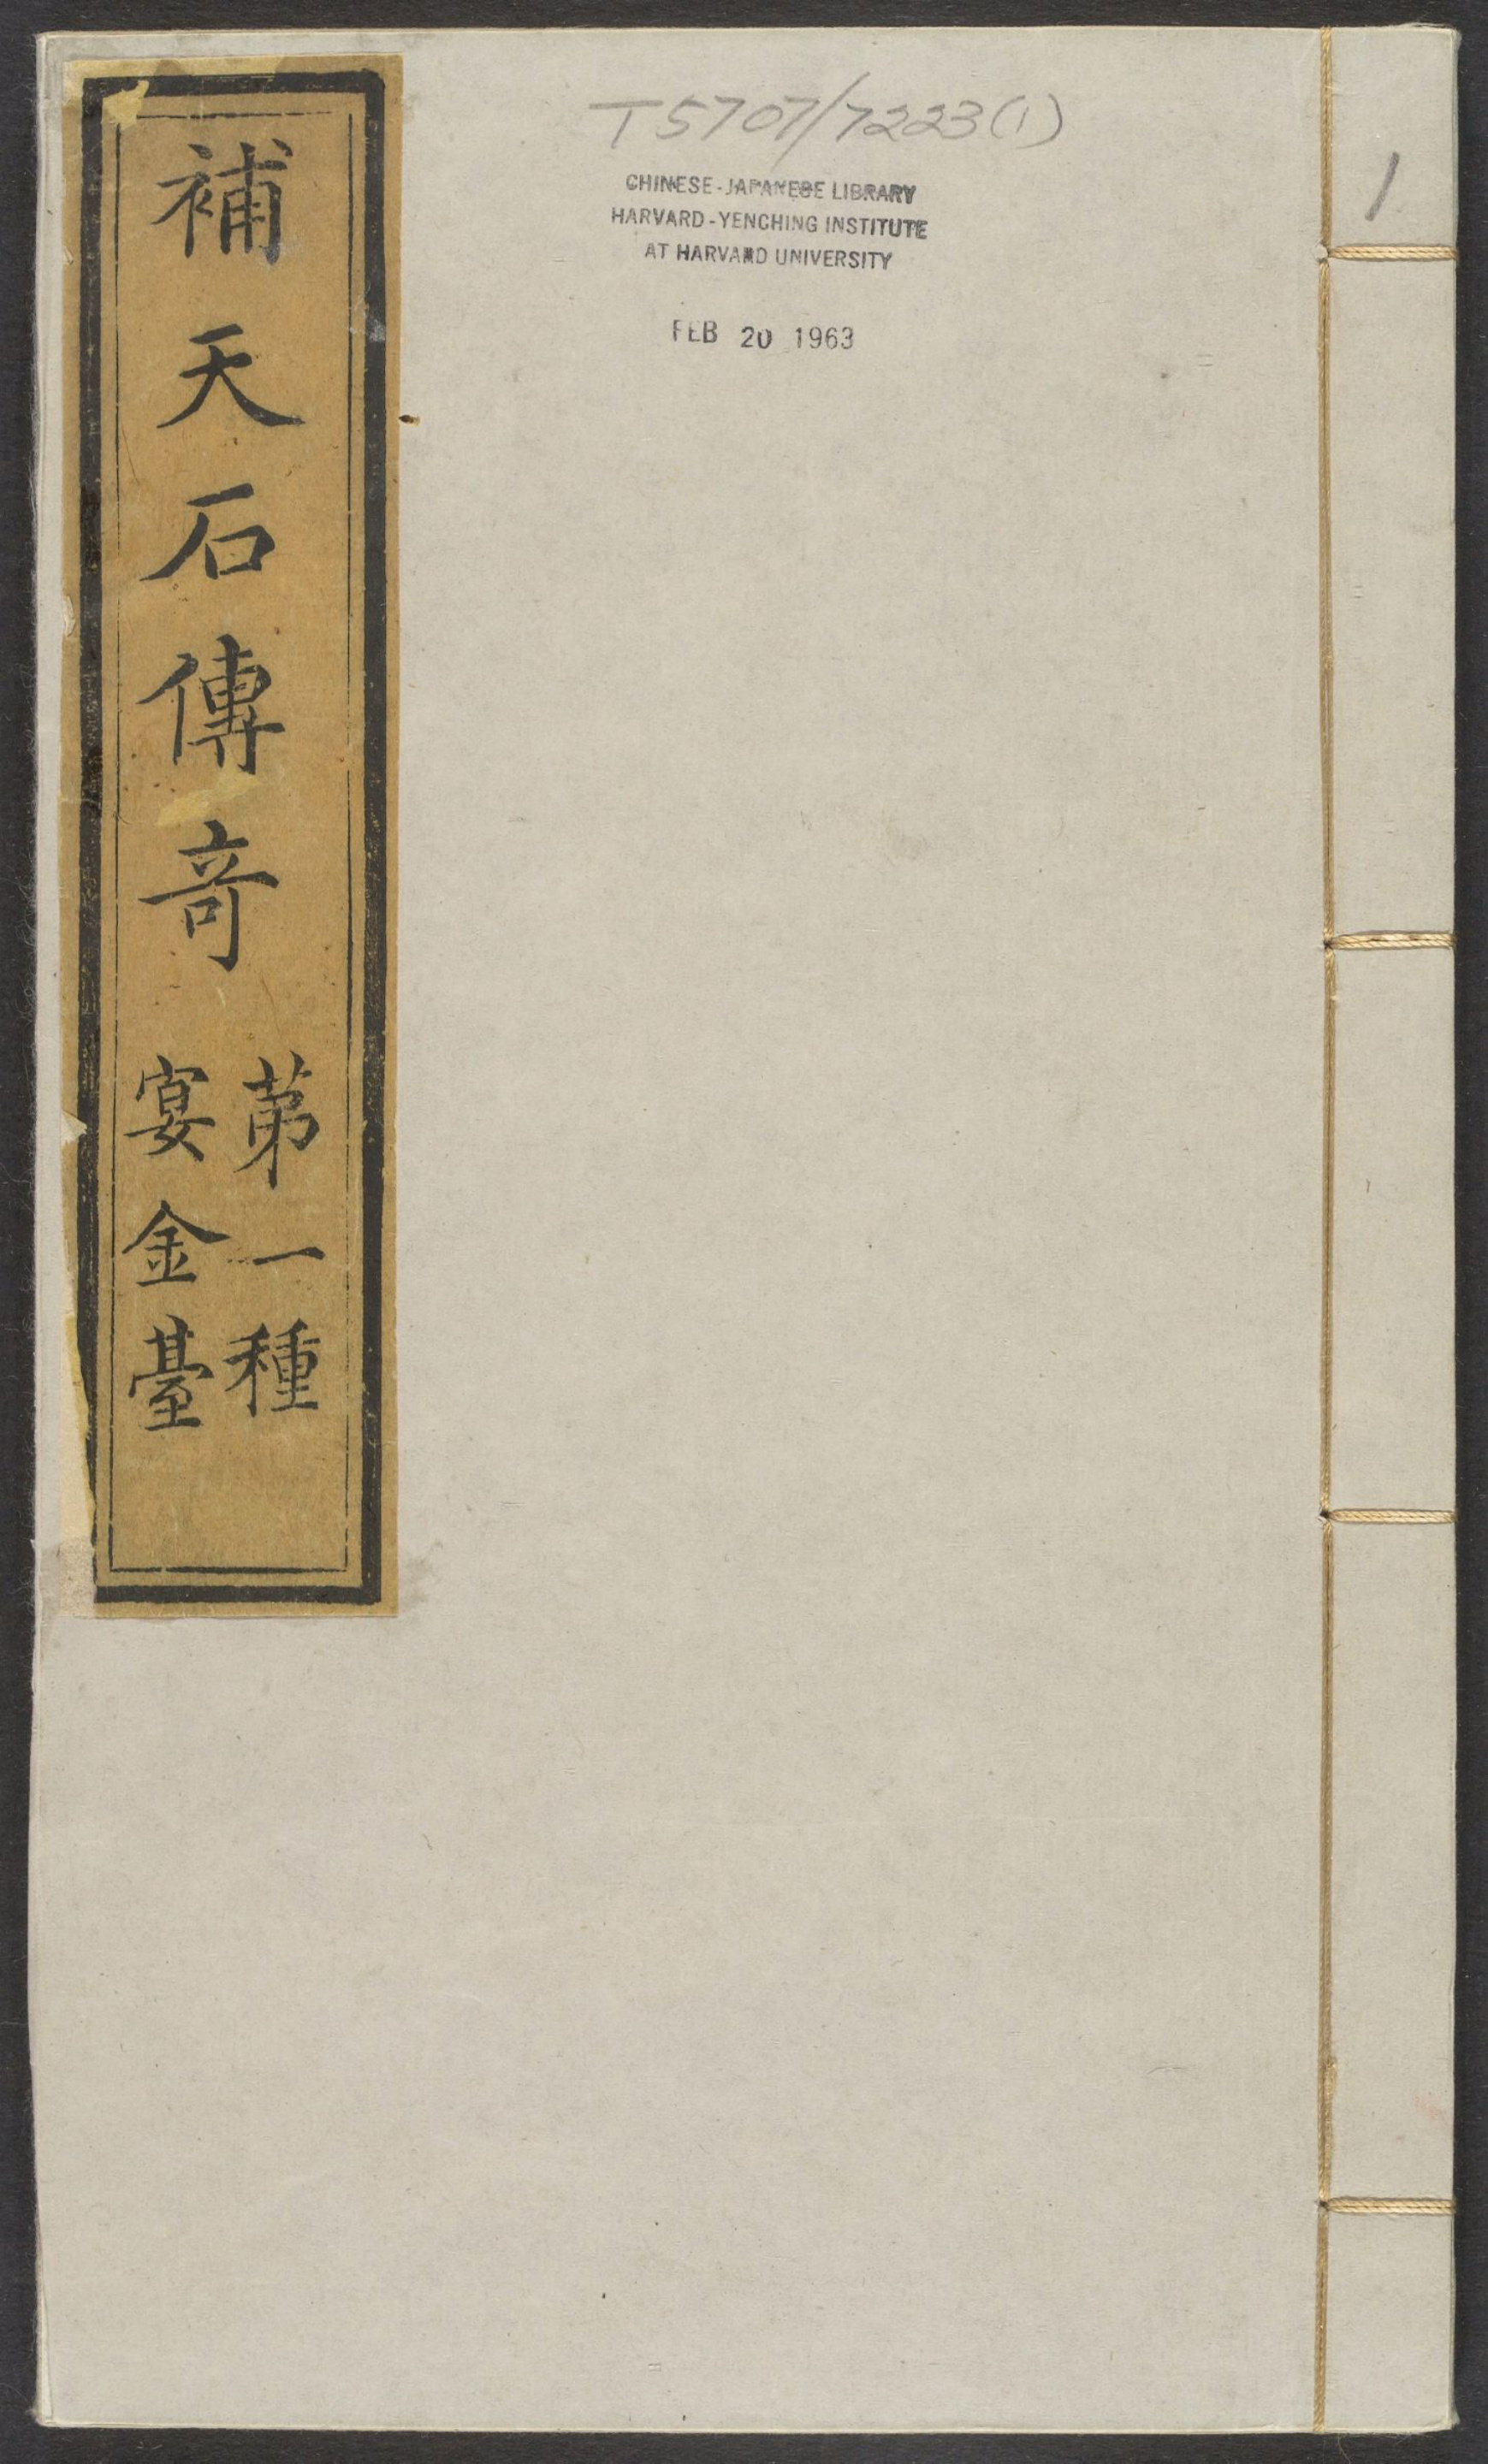 補天石傳竒
苐一種
宴金臺
T5707/7223(1)
CHINESE-JAPANESE LIBRARY
HARVARD-YENCHING INSTITUTE
AT HARVARD UNIVERSITY
FEB 20 1963
1